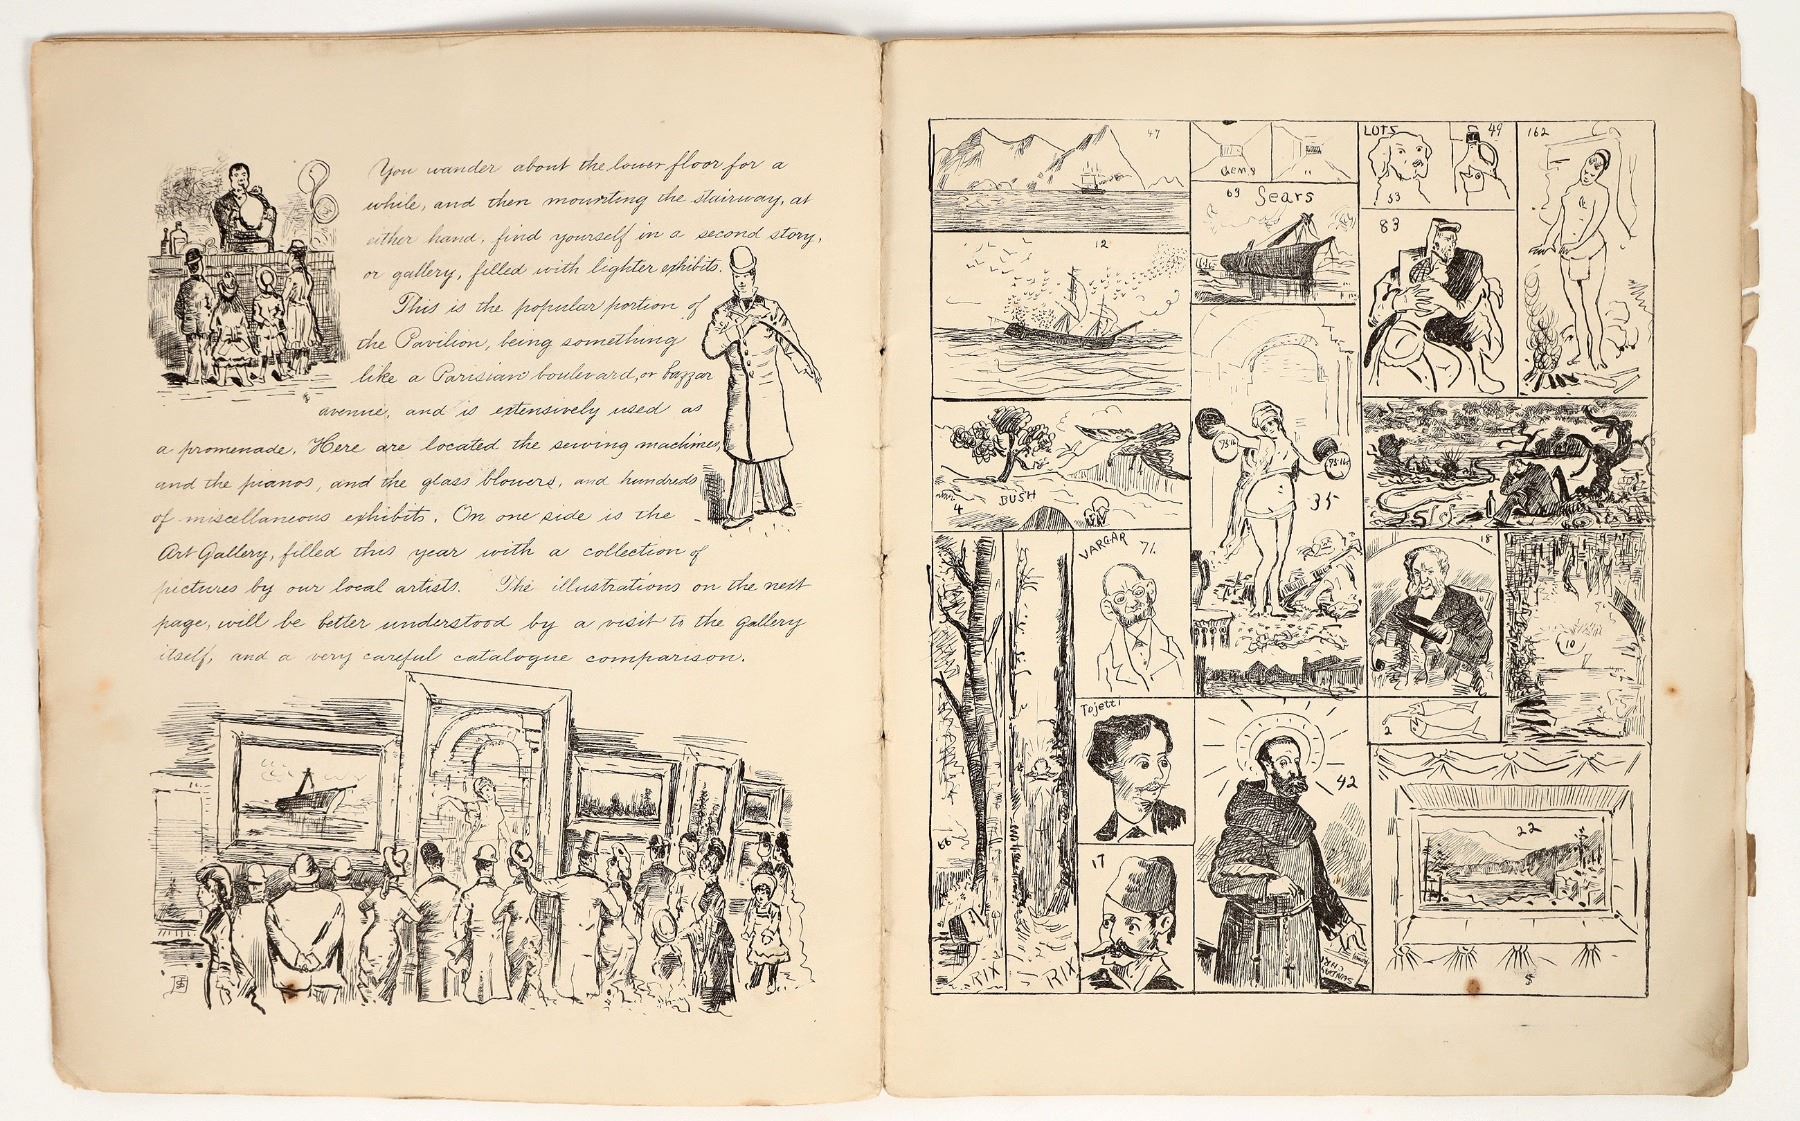 You wander about the lower floor for a
while, and then mounting the stairway, at
either hand, find yourself in a second story,
or gallery, filled with lighter exhibits.
This is the popular portion of
the Pavilion, being something
like a Parisian boulevard, or bazzar
avenue, and is extensively used as
a promenade. Here are located the sewing machines,
and the pianos, and the glass blowers, and hundreds
of miscellaneous exhibits. On one side is the
Art Gallery, filled this year with a collection of
pictures by our local artists. The illustrations on the next
page, will be better understood by a visit to the gallery
itself, and a very careful catalogue comparison.
47
GEMS
"
LOTS
53
49
162
69
Sears
12
83
4
BUSH
75 lb
75 lbs
35
VARGAR 71.
18
10
Tojetti
2
42
22
66
RIX
RIX
17
5